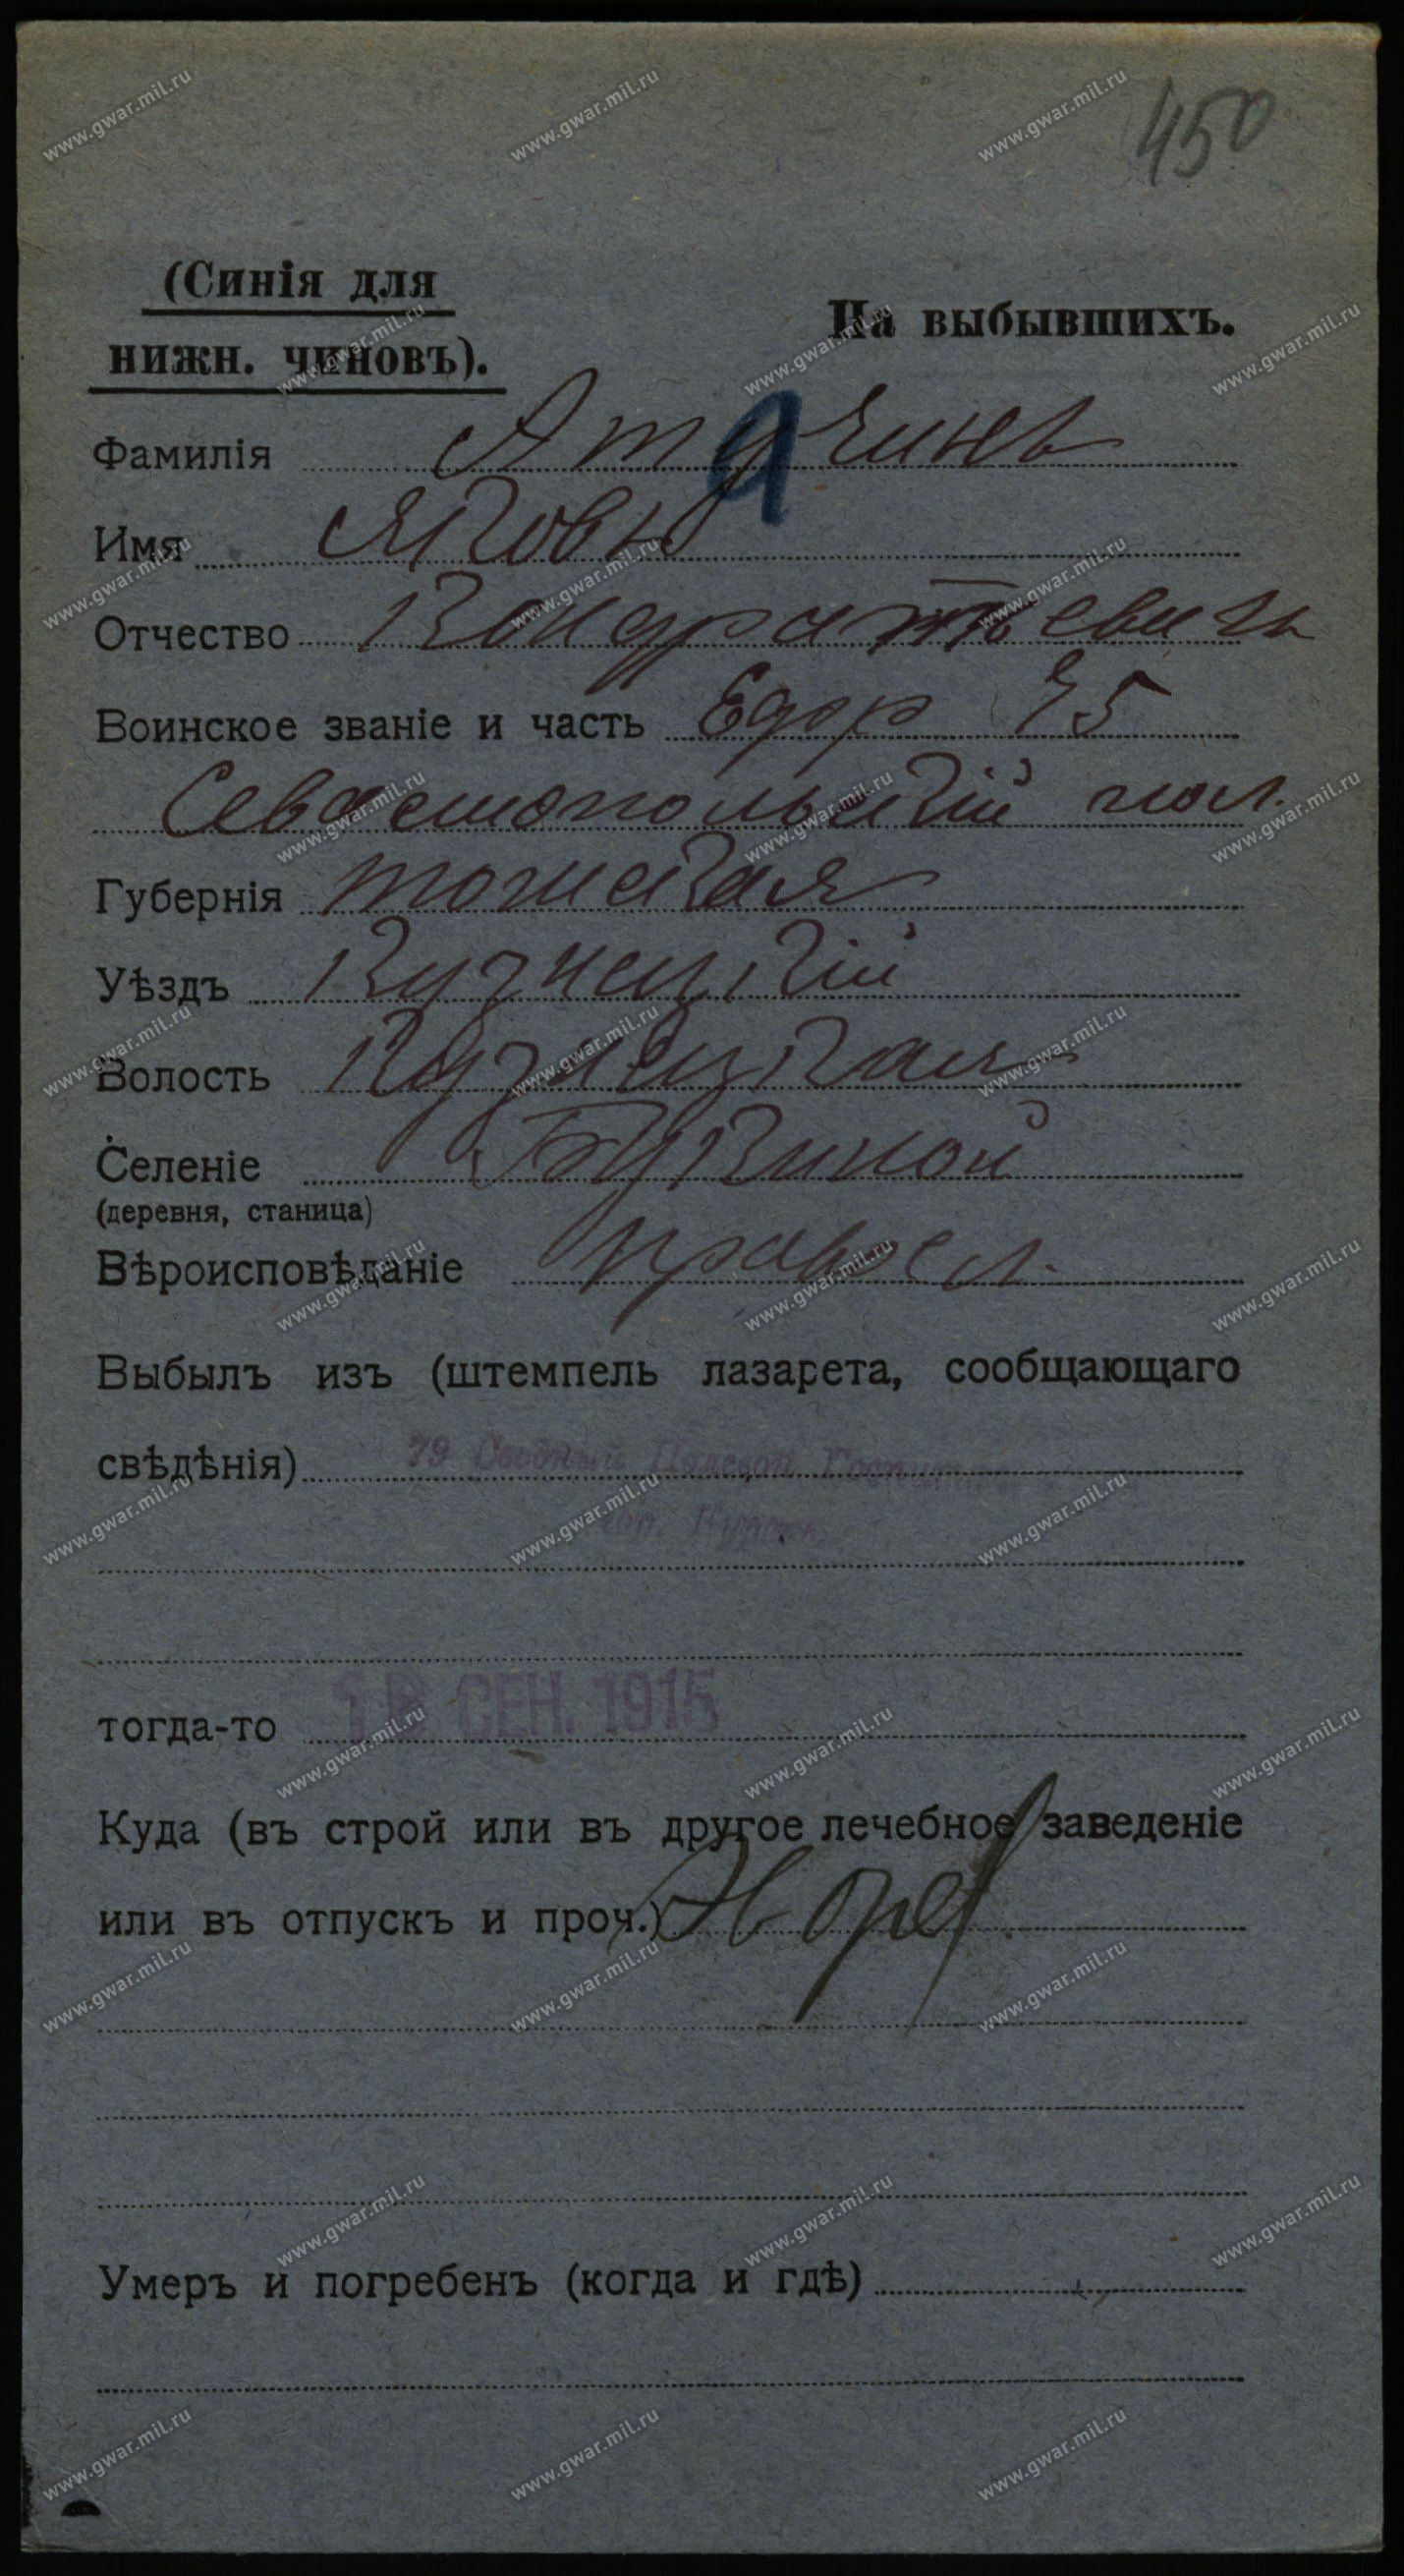 450
(Синія для
нижн. чиновъ).
На выбывшихъ.
Фамилія Атучинъ
Имя Яковъ
Отчество Кондратьевичъ
Воинское званіе и часть Ефр 75
Севастопольскій пол.
Губернія томская
Уѣздъ Кузнецкій
Волость Кузнецкая
Селеніе
(деревня, станица)
Вѣроисповѣданіе правосл.
Выбылъ изъ (штемпель лазарета, сообщающаго
свѣдѣнія) 79 Сводный Полевой Госпиталь
гор.
тогда-то СЕН. 1915
Куда (въ строй или въ другое лечебное заведеніе
или въ отпускъ и проч.)
Умеръ и погребенъ (когда и гдѣ)